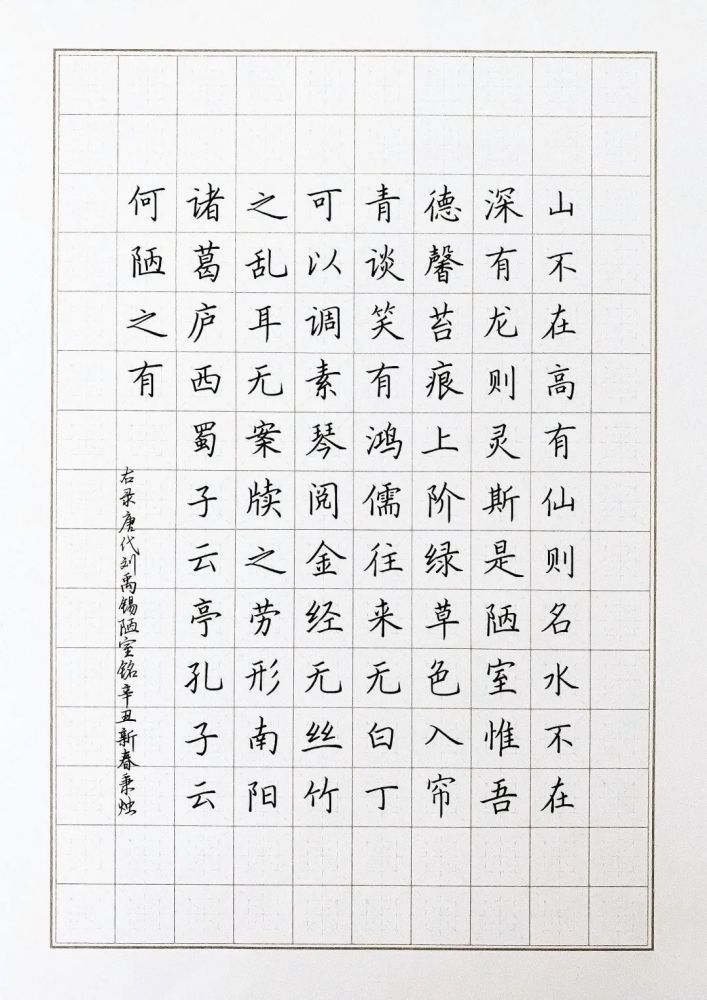 山不在高有仙则名水不在
深有龙则灵斯是陋室惟吾
德馨苔痕上阶绿草色入帘
青谈笑有鸿儒往来无白丁
可以调素琴阅金经无丝竹
之乱耳无案牍之劳形南阳
诸葛庐西蜀子云亭孔子云
何陋之有
右录唐代刘禹锡陋室铭辛丑新春秉烛